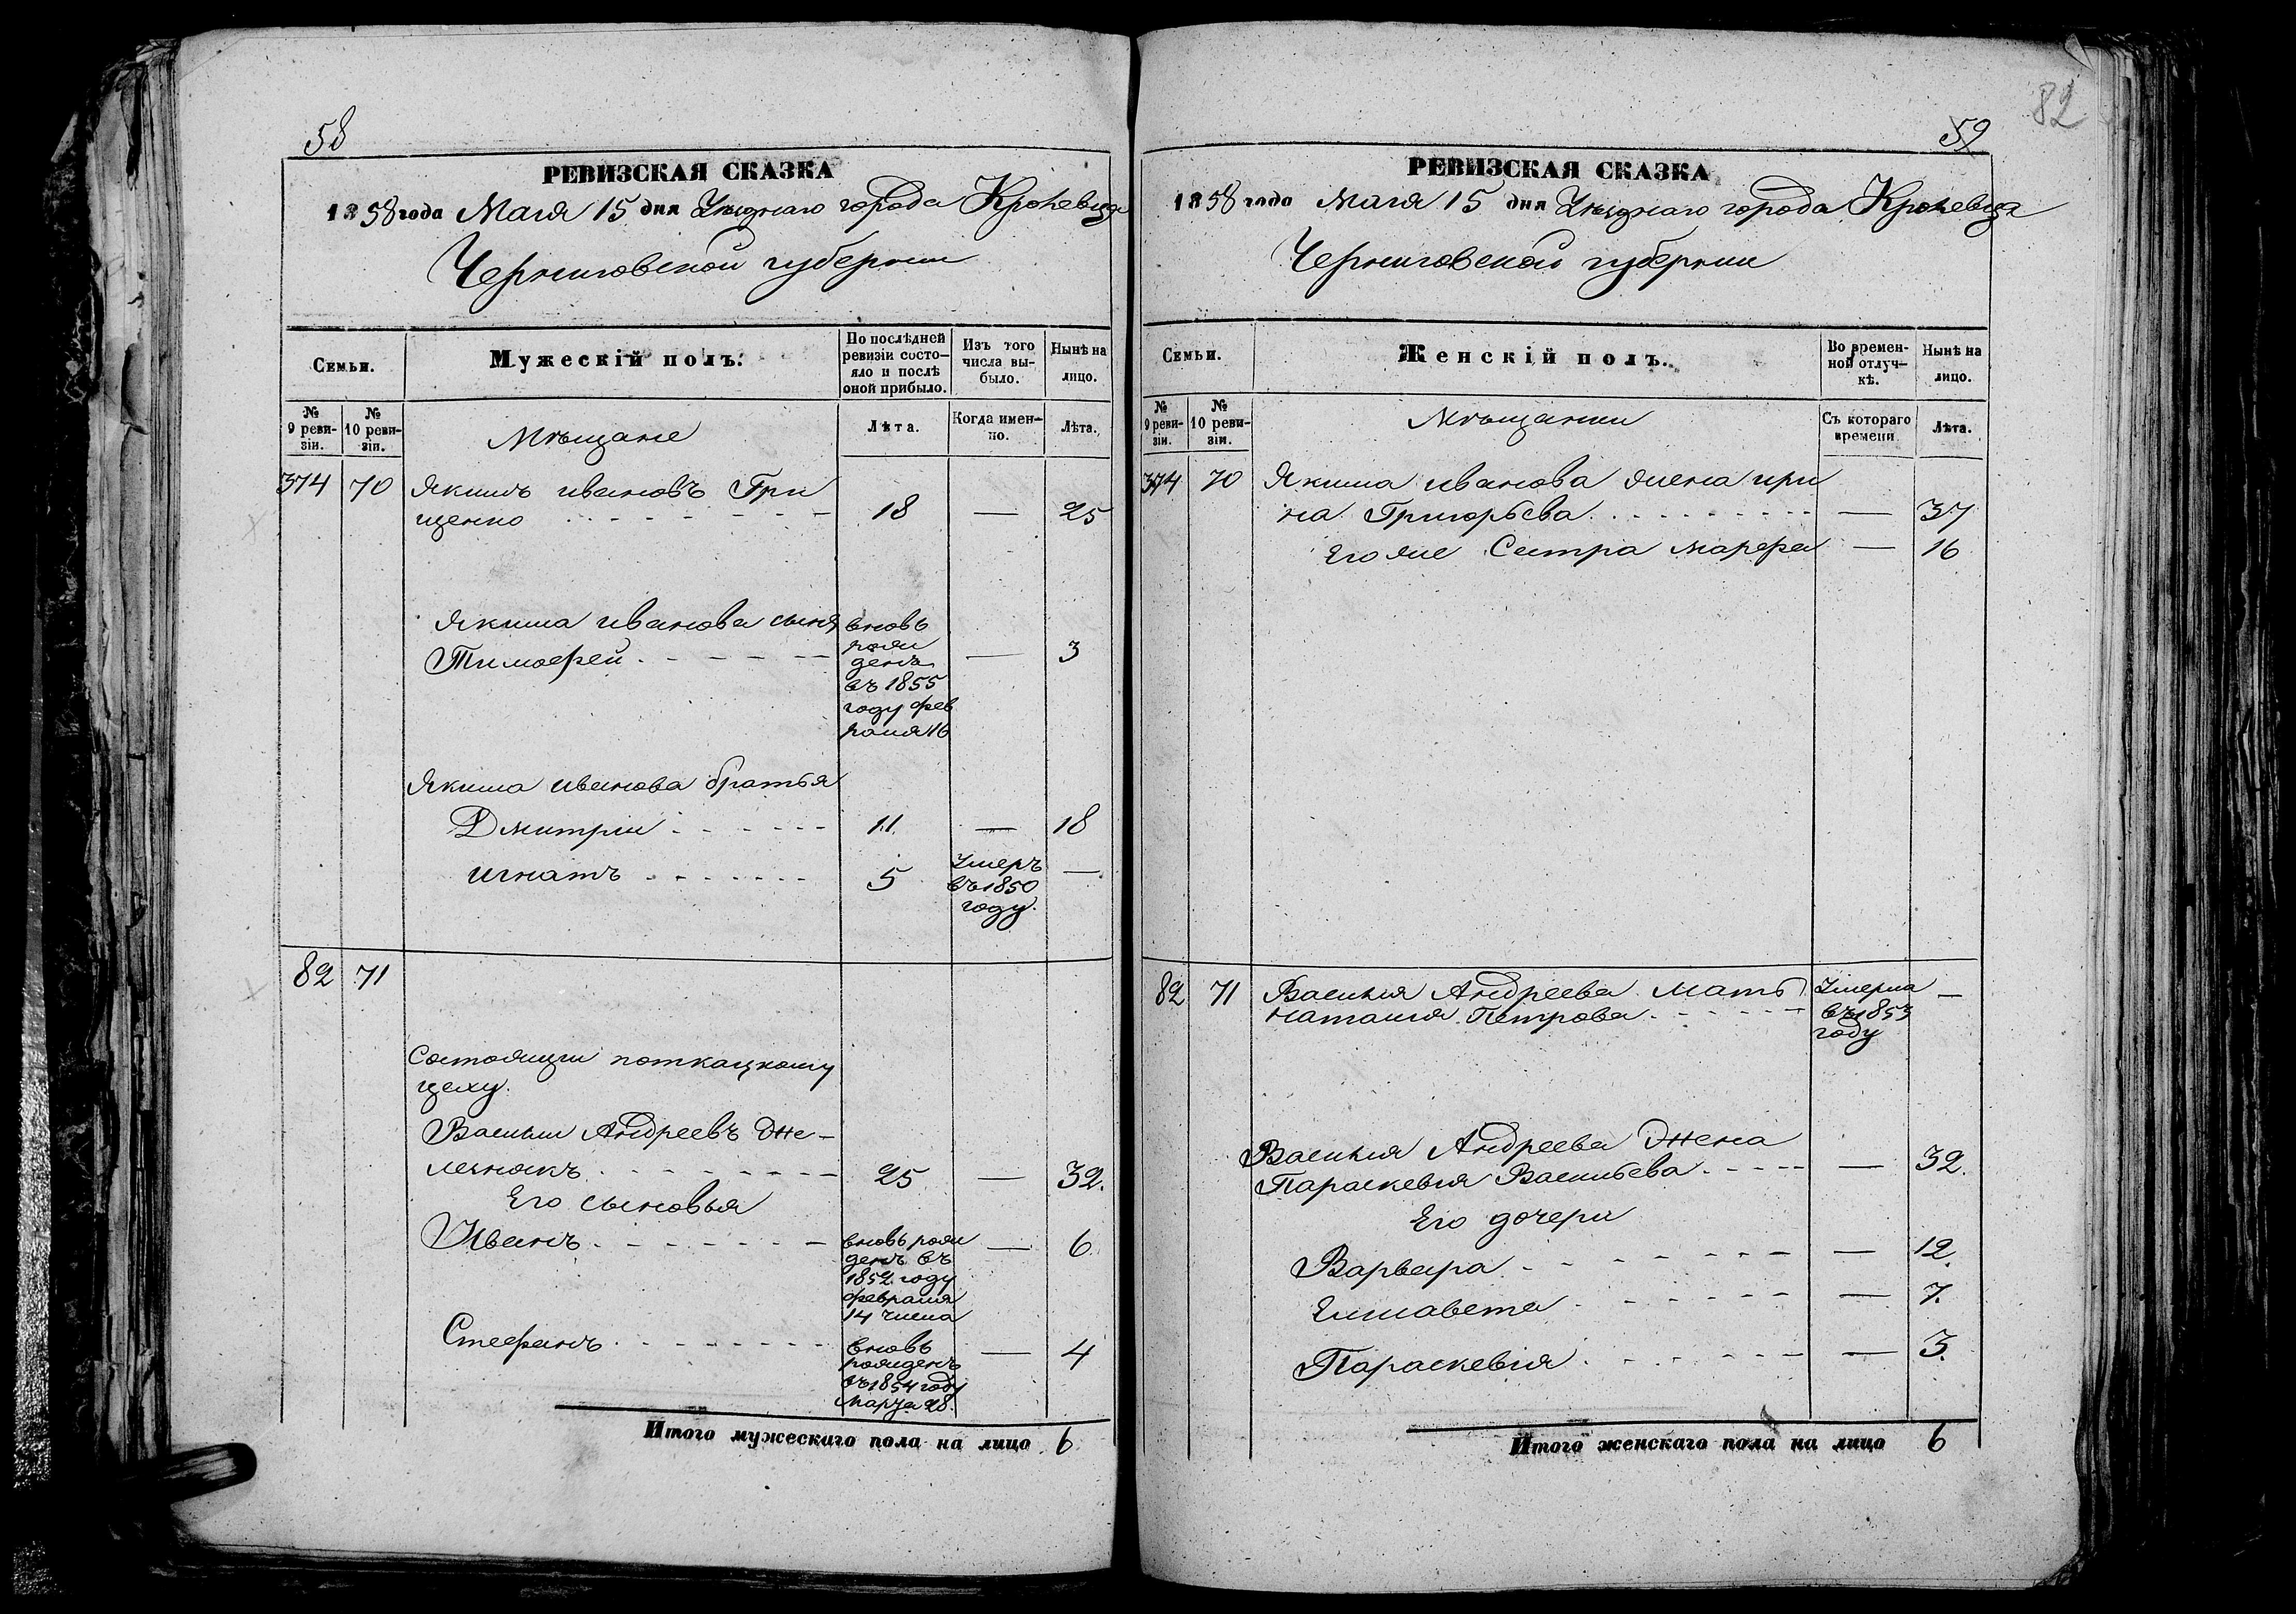 58
РЕВИЗСКАЯ СКАЗКА
1858 года Маія 15 дня Уѣзднаго города Кролевца
Черниговской губерніи
Семьи.
Мужескій полъ.
По послѣдней ревизіи состо-
яло и послѣ
оной прибыло.
Изъ того
числа вы-
было.
Нынѣ на
лицо.
№
9 реви-
зіи.
№
10 реви-
зіи.
Мѣщане
Лѣта.
Когда имен-
но.
Лѣта.
374 70 Якимъ Ивановъ Гри
щенко 18 — 25
Якима Иванова сынъ
Тимофей
вновь
рож
денъ
въ 1855
году фев
раля 16
— 3
Якима Иванова братья
Дмитрій 11 — 18
Игнатъ 5
Умеръ
въ 1850
году.
—
82 71
Состоящіи поткацкому
цеху.
Василій Андреевъ
25 — 32.
Его сыновья
Иванъ
вновь рож
денъ въ
1852 году
февраля
14 числа
— 6
Стефанъ
вновь
рожденъ
въ 1854 году
Марта 28.
— 4
Итого мужескаго пола на лицо 6
82
59
РЕВИЗСКАЯ СКАЗКА
1858 года Маія 15 дня Уѣзднаго города Кролевца
Черниговской губерніи
Семьи.
Женскій полъ.
Во времен-
ной отлуч-
кѣ.
Нынѣ на
лицо.
№
9 реви-
зіи.
№
10 реви-
зіи.
Мѣщанки
Съ котораго
времени
Лѣта.
374 70 Якима Иванова жена Ири
на Григорьева — 37
Его же Сестра Марфа — 16
82 71 Василія Андреева Мать
Наталія Петрова
Умерла
въ 1853
году
—
Василія Андреева Жена
Параскевія Васильева — 32.
Его дочери
Варвара — 12.
Елисавета — 7.
Параскевія — 3.
Итого женскаго пола на лицо 6